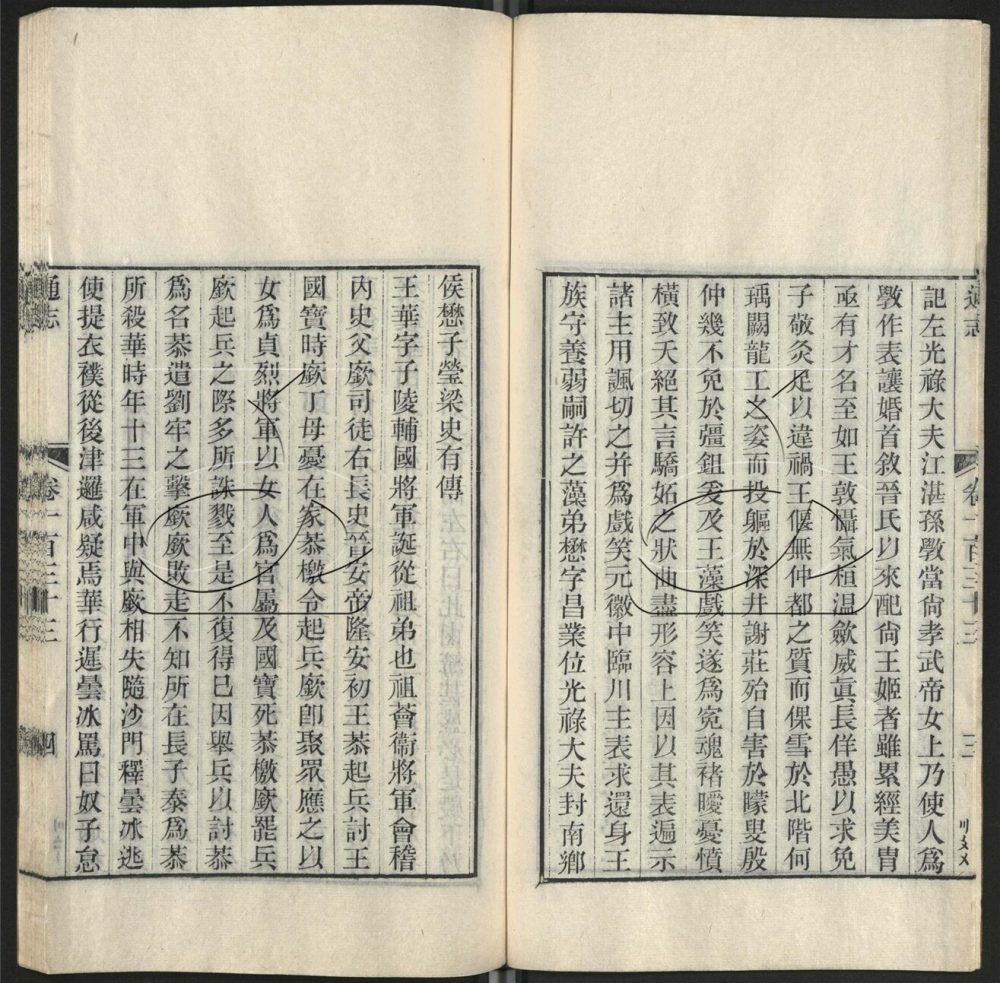 通志
卷一百三十三
三
記左光祿大夫江湛孫斆當尙孝武帝女上乃使人爲
斆作表讓婚首敘晉氏以來配尙王姬者雖累經美胄
亟有才名至如王敦懾氣桓温歛威眞長佯愚以求免
子敬灸足以違禍王偃無仲都之質而倮雪於北階何
瑀闕龍工之姿而投軀於深井謝莊殆自害於矇叟殷
仲幾不免於彊鉏爰及王藻戲笑遂爲寃魂褚曖憂憤
橫致夭絕其言驕妬之狀曲盡形容上因以其表遍示
諸主用諷切之并爲戲笑元徽中臨川主表求還身王
族守養弱嗣許之藻弟懋字昌業位光祿大夫封南鄉
侯懋子瑩梁史有傳
王華字子陵輔國將軍誕從祖弟也祖薈衞將軍會稽
內史父廞司徒右長史晉安帝隆安初王恭起兵討王
國寶時廞丁母憂在家恭檄令起兵廞卽聚眾應之以
女爲貞烈將軍以女人爲官屬及國寶死恭檄廞罷兵
廞起兵之際多所誅戮至是不復得已因舉兵以討恭
爲名恭遣劉牢之擊廞廞敗走不知所在長子泰爲恭
所殺華時年十三在軍中與廞相失隨沙門釋曇冰逃
使提衣襆從後津邏咸疑焉華行遲曇冰罵曰奴子怠
通志
卷一百三十三
四